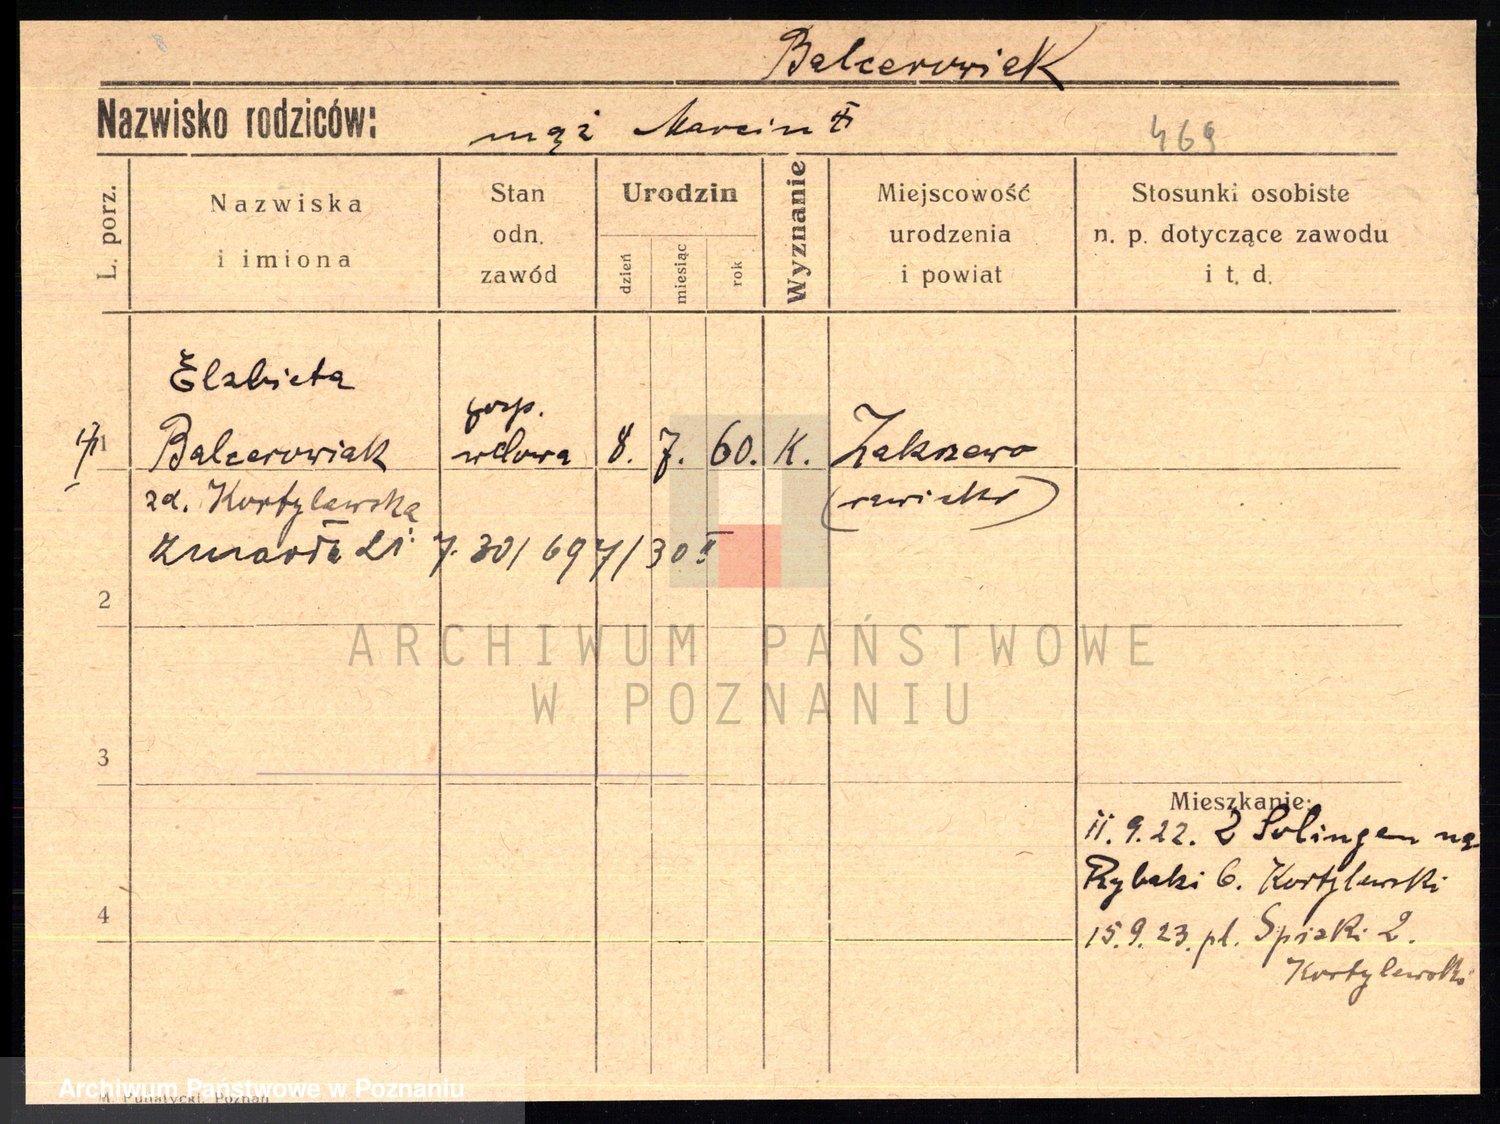 Balcerowiak
Nazwisko rodziców:
mąż Marcin
469
L. porz.
Nazwiska
i imiona
Stan
odn.
zawód
Urodzin
dzień
miesiąc
rok
Wyznanie
Miejscowość
urodzenia
i powiat
Stosunki osobiste
n. p. dotyczące zawodu
i t. d.
Elzbieta
1 Balcerowiak gosp. wdowa 8. 7. 60. K. Zakrzewo
zd. Kortylewska (rawicki)
zmarła 21. 7. 30/697/30 II
2
ARCHIWUM PAŃSTWOWE
W POZNANIU
3
Mieszkanie:
11.9.22. z Solingen na
Rybaki 6. Kortylewski
4
15.9.23. pl. Spiski 2.
Kortylewski
Archiwum Państwowe w Poznaniu
Poznań